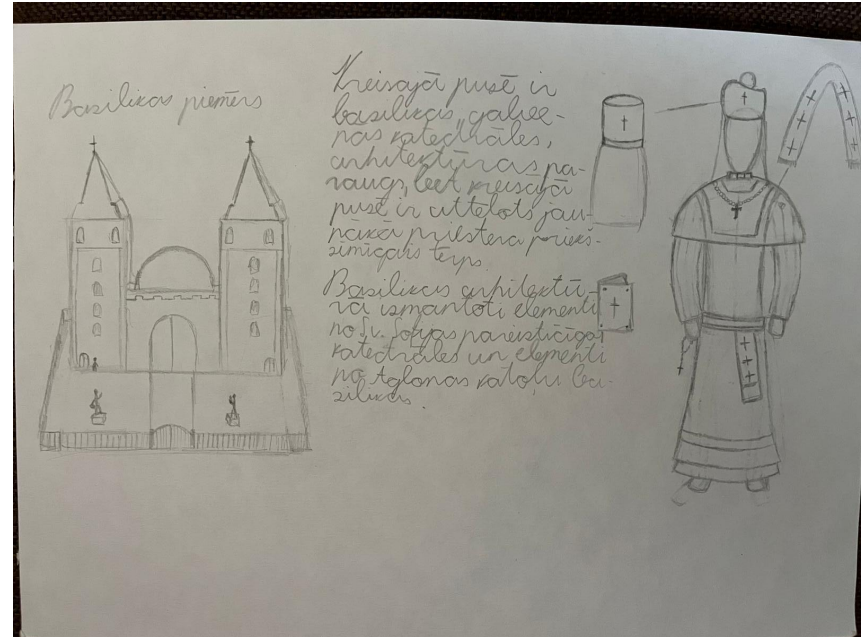 Basilikas piemērs
Kreisajā pusē ir
basilikas, galve-
nas katedrāles,
arhitektūras pa-
raugs, bet kreisajā
pusē ir attēlots jau-
nākā priestera priekš-
zīmīgais tērps.
Basilikas arhitektū-
rā izmantoti elementi
no Sv. Sofijas pareisticīgo
katedrāles un elementi
no Aglonas katoļu ba-
zilikas.